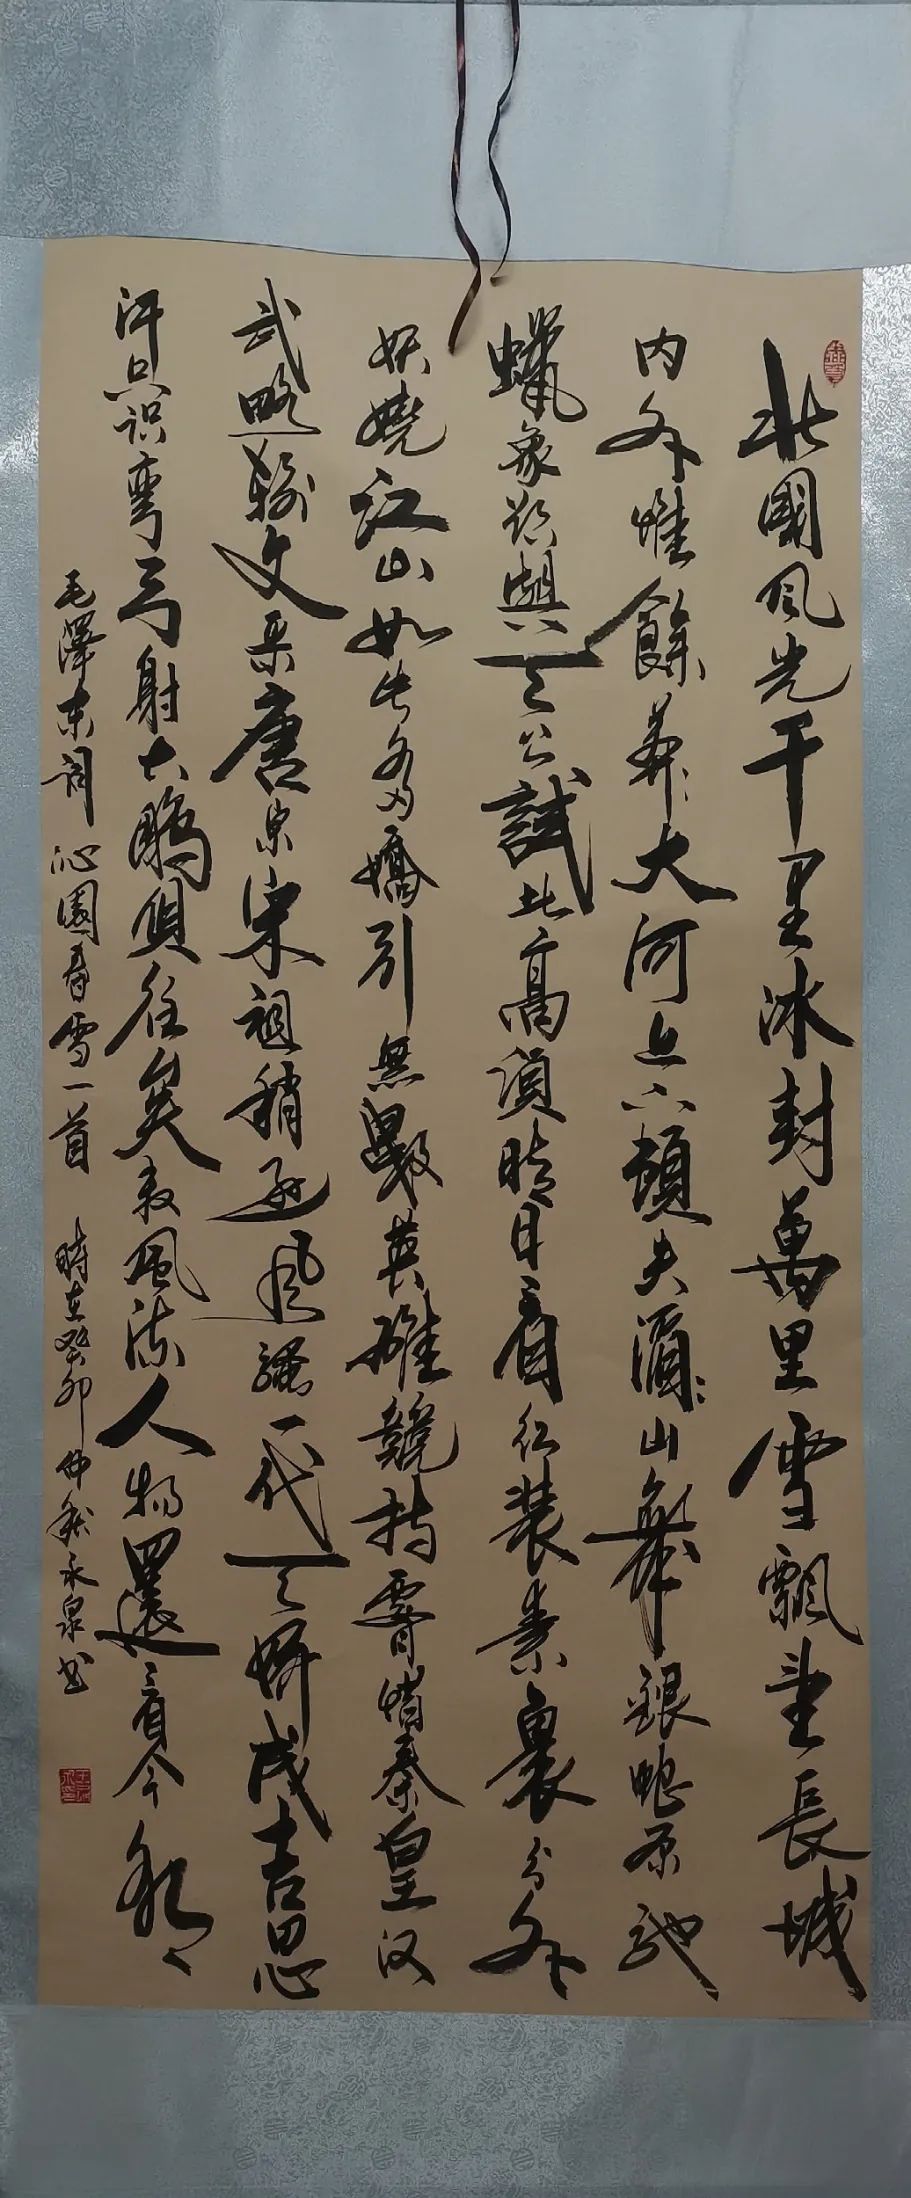 北國风光千里冰封萬里雪飄望長城
内外惟餘莽〻大河上下頓失滔〻山舞銀蛇原馳
蠟象欲與天公試比高須晴日看红装素裹分外
妖嬈江山如此多嬌引無數英雄競折腰惜秦皇汉
武略输文采唐宗宋祖稍逊风騷一代天骄成吉思
汗只识弯弓射大鵰俱往矣数風流人物還看今朝
毛澤东詞沁園春雪一首 時在癸卯仲秋永泉书